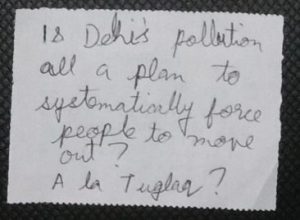 Is Dehi's pollution
all a plan to
systematically force
people to move
out?
A la Tuglaq?